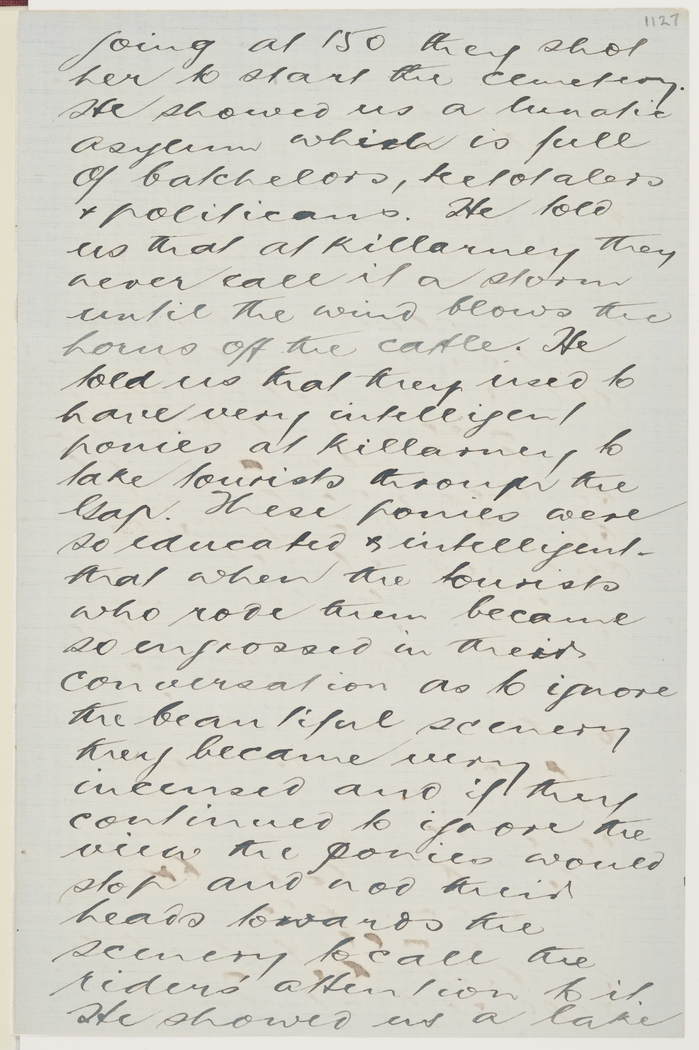 1127
going at 150 they shot
her to start the cemetery.
He showed us a lunatic
asylum which is full
of batchelors, teetotalers
& politicans. He told
us that at Killarney they
never call it a storm
until the wind blows the
horns off the cattle. He
told us that they used to
have very intelligent
ponies at Killarney to
take tourists through the
Gap. These ponies were
so educated & intelligent
that when the tourists
who rode them became
so engrossed in their
conversation as to ignore
the beautiful scenery
they became very
incensed and if they
continued to ignore the
view the ponies would
stop and nod their
heads towards the
scenery to call the
riders' attention to it.
He showed us a lake